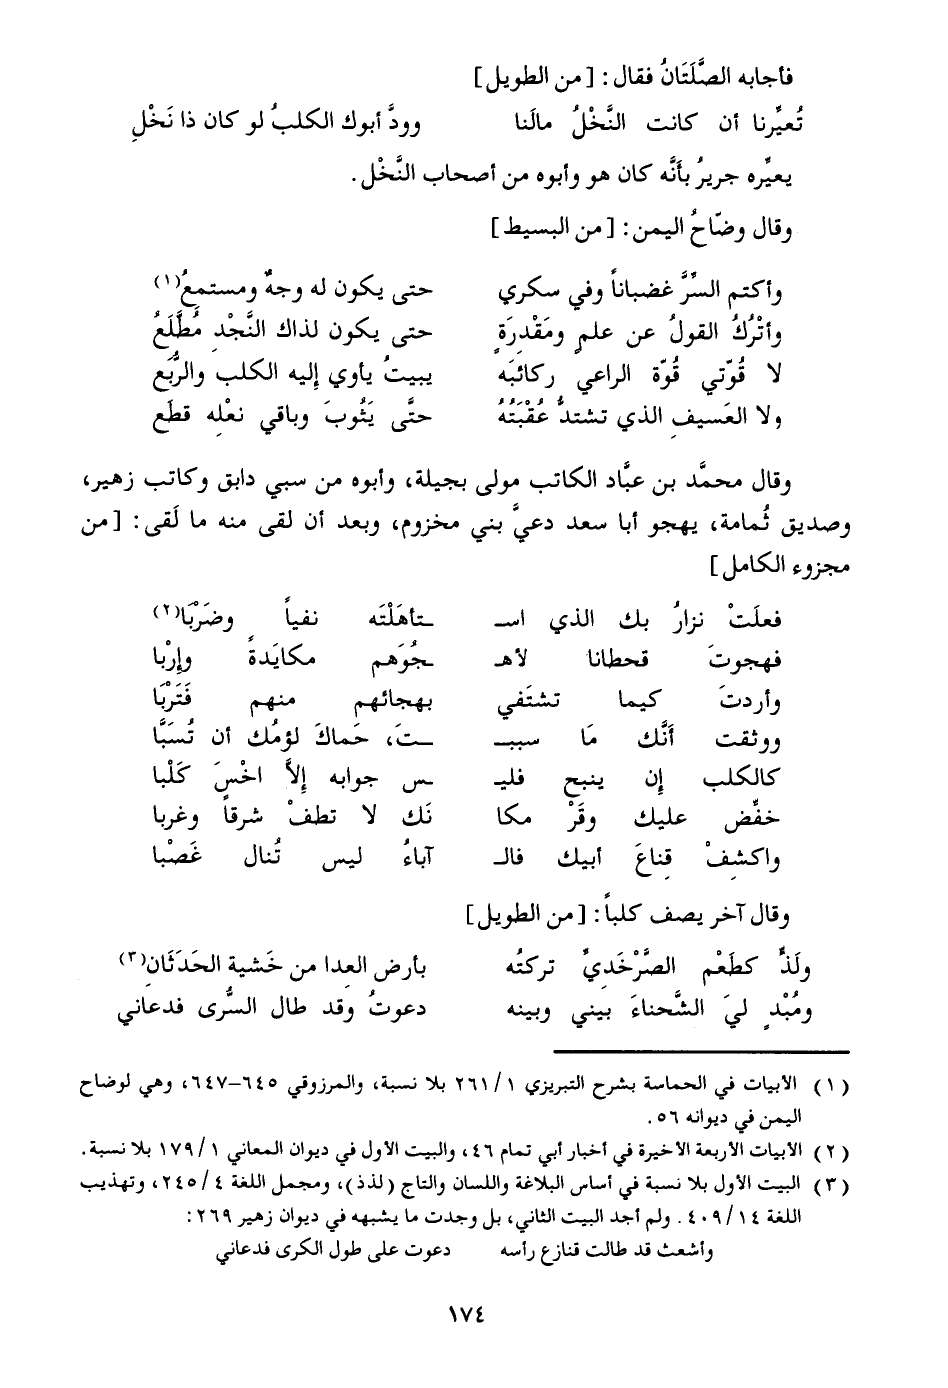 فأجابه الصَّلَتَانُ فقال : [من الطويل]
تُعيِّرنا أن كانت النَّخْلُ مالَنا وودَّ أبوك الكلبُ لو كان ذا نَخْلِ
يعيِّره جريرُ بأَنَّه كان هو وأبوه من أصحاب النَّخْل .
وقال وضّاحُ اليمن : [من البسيط]
وأكتم السرَّ غضباناً وفي سكري حتى يكون له وجهٌ ومستمعُ(١)
وأتْرُكُ القولُ عن علمٍ ومَقْدرَةٍ حتى يكون لذاك النَّجْدِ مُطَّلَعُ
لا قُوّتي قُوّة الراعي ركائبَه يبيتُ يأوي إليه الكلب والرُّبَع
ولا العَسيفِ الذي تشتدُّ عُقْبَتُهُ حتَّى يَثُوبَ وباقي نعْله قطَع
وقال محمَّد بن عبَّاد الكاتب مولى بجيلة، وأبوه من سبي دابق وكاتب زهير،
وصديق ثُمامة، يهجو أبا سعد دعيَّ بني مخزوم، وبعد أن لقى منه ما لَقى : [من
مجزوء الكامل]
فعلَتْ نزارُ بك الذي اسـ ـتأهَلْتَه نفياً وضَرْبَا(٢)
فهجوتَ قحطانا لأهـ ـجُوَهم مكايَدةً وإرْبا
وأردتَ كيما تشتَفي بهجائهم منهم فَتَرْبَا
ووثقت أنَّك مَا سببـ ـتَ، حَماكَ لؤمُك أن تُسَبَّا
كالكلب إن ينبح فليـ ـس جوابه إلاَّ اخْسَ كَلْبا
خفِّض عليك وقَرْ مكا نَك لا تطفْ شرقاً وغربا
واكشفْ قِناعَ أبيك فالـ آباءُ ليس تُنال غَصْبا
وقال آخر يصف كلباً : [من الطويل]
ولَذٍّ كطَعْم الصَّرْخَديِّ تركتُه بأرض العدا من خَشية الحَدَثَان(٣)
ومُبْدٍ ليَ الشَّحناءَ بيني وبينه دعوتُ وقد طال السُّرى فدعاني
(١) الأبيات في الحماسة بشرح التبريزي ١/ ٢٦١ بلا نسبة، والمرزوقي ٦٤٥–٦٤٧، وهي لوضاح
اليمن في ديوانه ٥٦ .
(٢) الأبيات الأربعة الأخيرة في أخبار أبي تمام ٤٦، والبيت الأول في ديوان المعاني ١/ ١٧٩ بلا نسبة .
(٣) البيت الأول بلا نسبة في أساس البلاغة واللسان والتاج (لذذ)، ومجمل اللغة ٤/ ٢٤٥، وتهذيب
اللغة ١٤/ ٤٠٩ . ولم أجد البيت الثاني، بل وجدت ما يشبهه في ديوان زهير ٢٦٩ :
وأشعث قد طالت قنازع رأسه دعوت على طول الكرى فدعاني
١٧٤